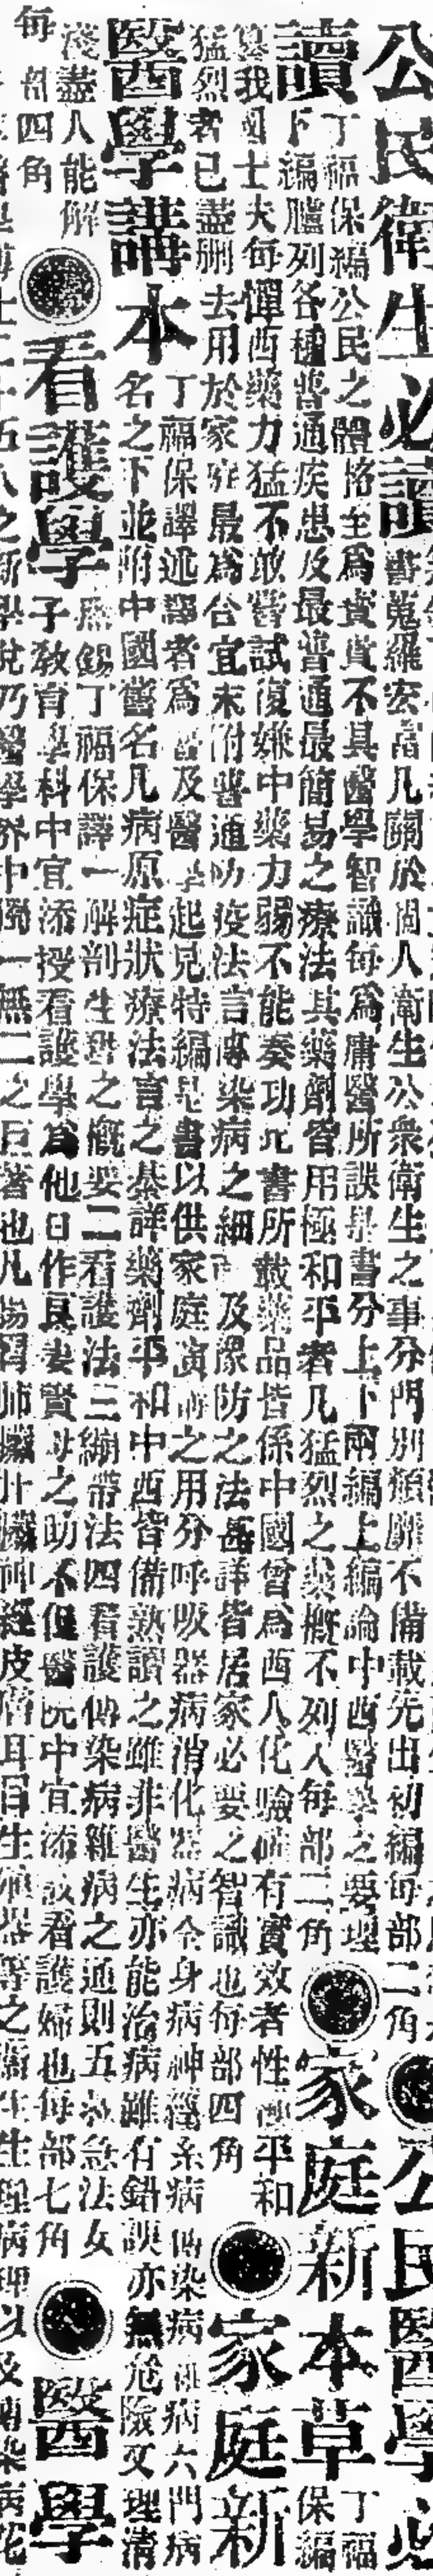 公民衛生必讀書蒐羅宏富凡關於個人衛生公衆衛生之事分門別類靡不備載先出初編每部二角●公民醫學必
讀丁福保編公民之體格至爲貴不其醫學智識每爲庸醫所誤是書分上下兩編上編論中西醫學之要理
下編臚列各種普通疾患及最普通最簡易之療法其藥劑皆用極和平者凡猛烈之藥概不列入每部二角●家庭新本草丁福保編
篡我國士夫每憚西藥力猛不敢嘗試復嫌中藥力弱不能奏功此書所載藥品皆係中國曾爲西人化驗確有實效者性極平和
猛烈者已盡刪去用於家庭最爲合宜末附普通防疫法言傳染病之細菌及豫防之法甚詳皆居家必要之智識也每部四角●家庭新
醫學講本丁福保譯述譯者爲普及醫學起見特編是書以供家庭實之用分呼吸器病消化器病全身病神經系病傳染病雜病六門病
名之下並附中國舊名凡病原症狀療法言之綦詳藥劑平和中西皆備熟讀之雖非醫生亦能治病雖有錯誤亦無危險文理清
淺盡人能解
每部四角●看護學無錫丁福保譯一解剖生理之概要二看護法三繃帶法四看護傳染病雜病之通則五救急法女
子教育學科中宜添授看護學爲他日作良妻賢母之助不但醫院中宜添設看護婦也每部七角●醫學